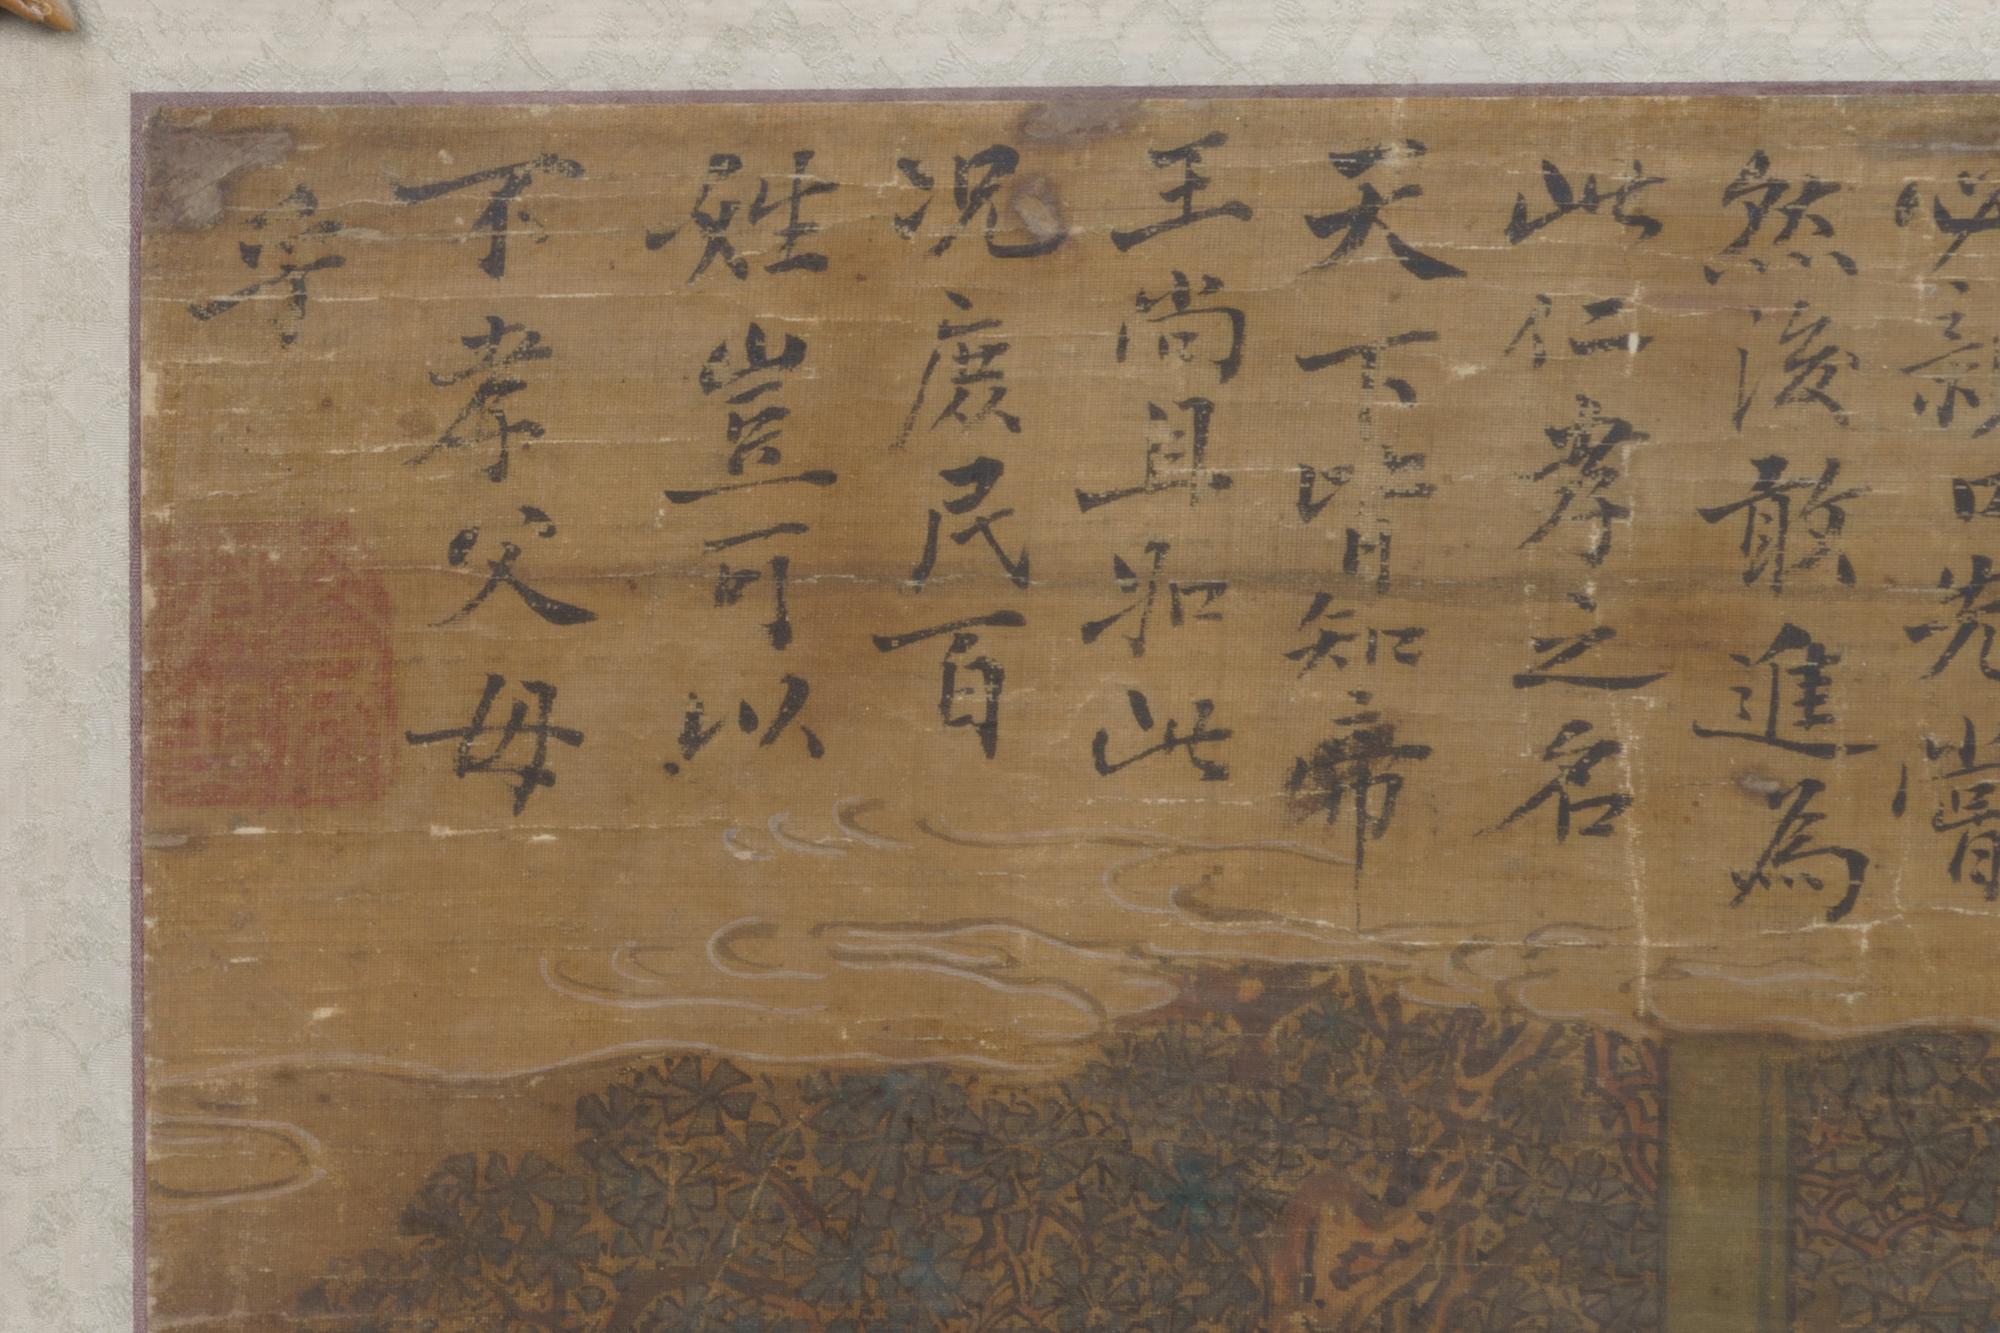 必親口先嘗
然後敢進為
此仁孝之名
天下皆知帝
王尚且如此
况庶民百
姓豈可以
不孝父母
乎